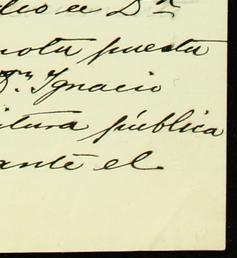 de Dn
nota puesta
Dn Ignacio
itura pública
ante el